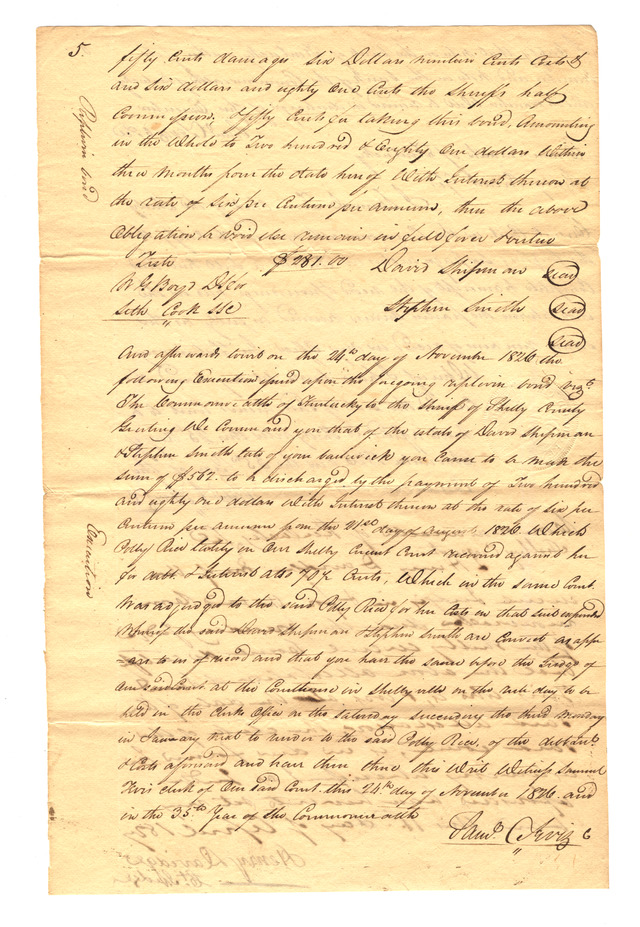 5.
fifty Cents damages Six Dollars nineteen Cents Costs &
and Six dollars and eighty One Cents the Sheriffs half
Commission, & fifty Cents for taking this bond, Amounting
in the Whole to Two hundred & Eighty One dollars Within
three Months from the date hereof With Interest thereon at
the rate of Six per Centum per annum, then the above
Obligation be void else remain in full force & virtue
Teste $281.00 David Shipman Seal
W G Boyd D S for
Seth Cook SSC Stephen Smith Seal
Seal
Replevin bond
And afterwards towit on the 24th day of November 1826 the
following Execution issued upon the foregoing replevin bond Viz.
The Commonwealth of Kentucky to the Sheriff of Shelby County
Greeting We Command you that of the estate of David Shipman
& Stephen Smith late of your bailiwick you Cause to be made the
sum of $562. to be discharged by the payment of Two hundred
and eighty one dollars With Interest thereon at the rate of six per
Centum per annum from the 21st day of August 1826 Which
Polly Rice lately in Our Shelby Circuit Court recovered against
for debt & Interest also 70½ Cents, Which in the same Court
Was adjudged to the said Polly Rice for her Costs in that suit expended
Whereof the said David Shipman & Stephen Smith are Convict as appe
ars to us of record and that you have the same before the Judge of
our said Court at the Courthouse in Shelbyville on the rule day to be
held in the Clerks Office on the Saturday succeeding the third Monday
in January next to render to the said Polly Rice, of the debt Int.
& Costs aforesaid and have then there this Writ Witness Samuel
clerk of Our said Court this 24th day of November 1826 and
in the 35th Year of the Commonwealth
Execution
Saml.